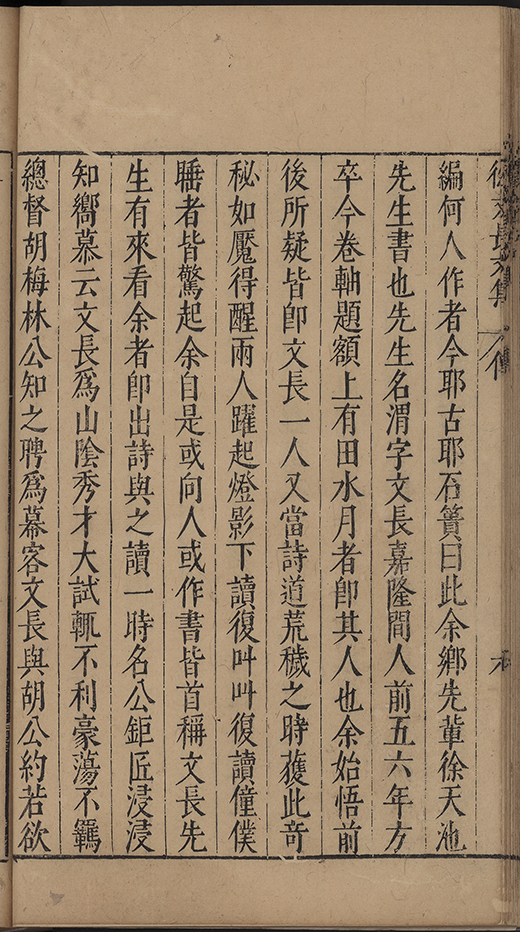 徐文長文集 傳
編何人作者今耶古耶石簣曰此余鄉先輩徐天池
先生書也先生名渭字文長嘉隆間人前五六年方
卒今卷軸題額上有田水月者卽其人也余始悟前
後所疑皆卽文長一人又當詩道荒穢之時獲此奇
秘如魘得醒兩人躍起燈影下讀復叫叫復讀僮僕
睡者皆驚起余自是或向人或作書皆首稱文長先
生有來看余者卽出詩與之讀一時名公鉅匠浸浸
知嚮慕云文長爲山陰秀才大試輒不利豪蕩不羈
總督胡梅林公知之聘爲幕客文長與胡公約若欲